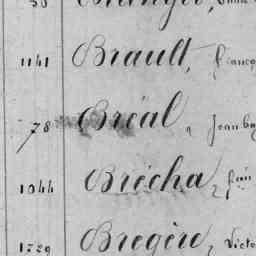 1141 Brault, franço
78 Bréal, Jean ba
1044 Brécha,
1729 Bregère, Victo